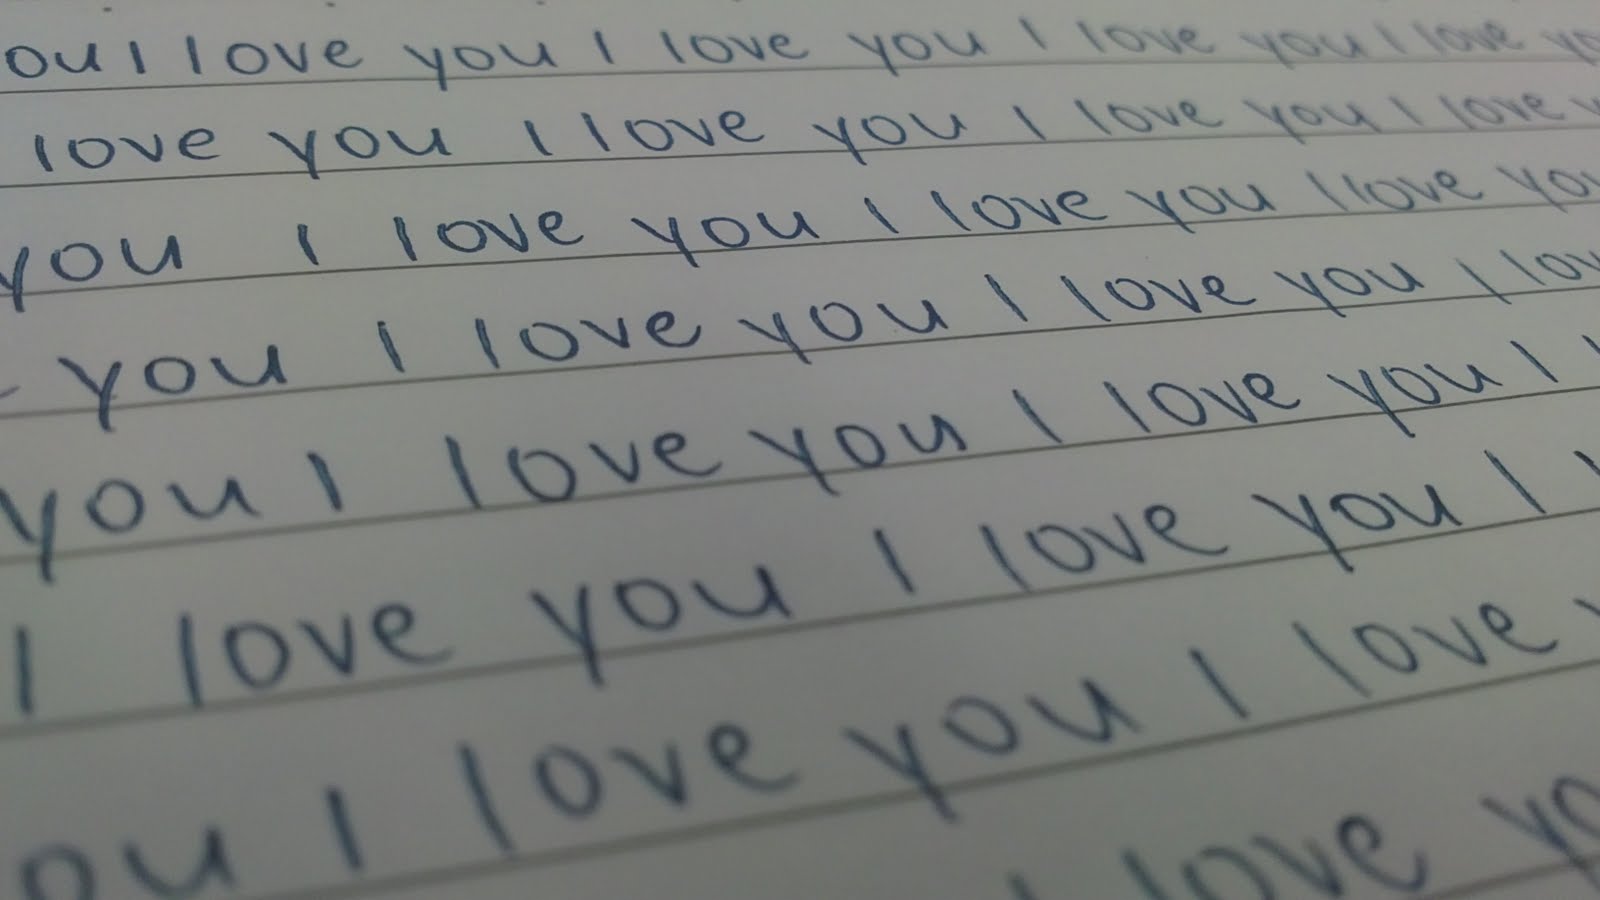 ou I love you I love you I love you I love yo
love you I love you I love you I love
you I love you I love you I love you
you I love you I love you I lov
you I love you I love you I
I love you I love you I
ou I love you I love
love yo